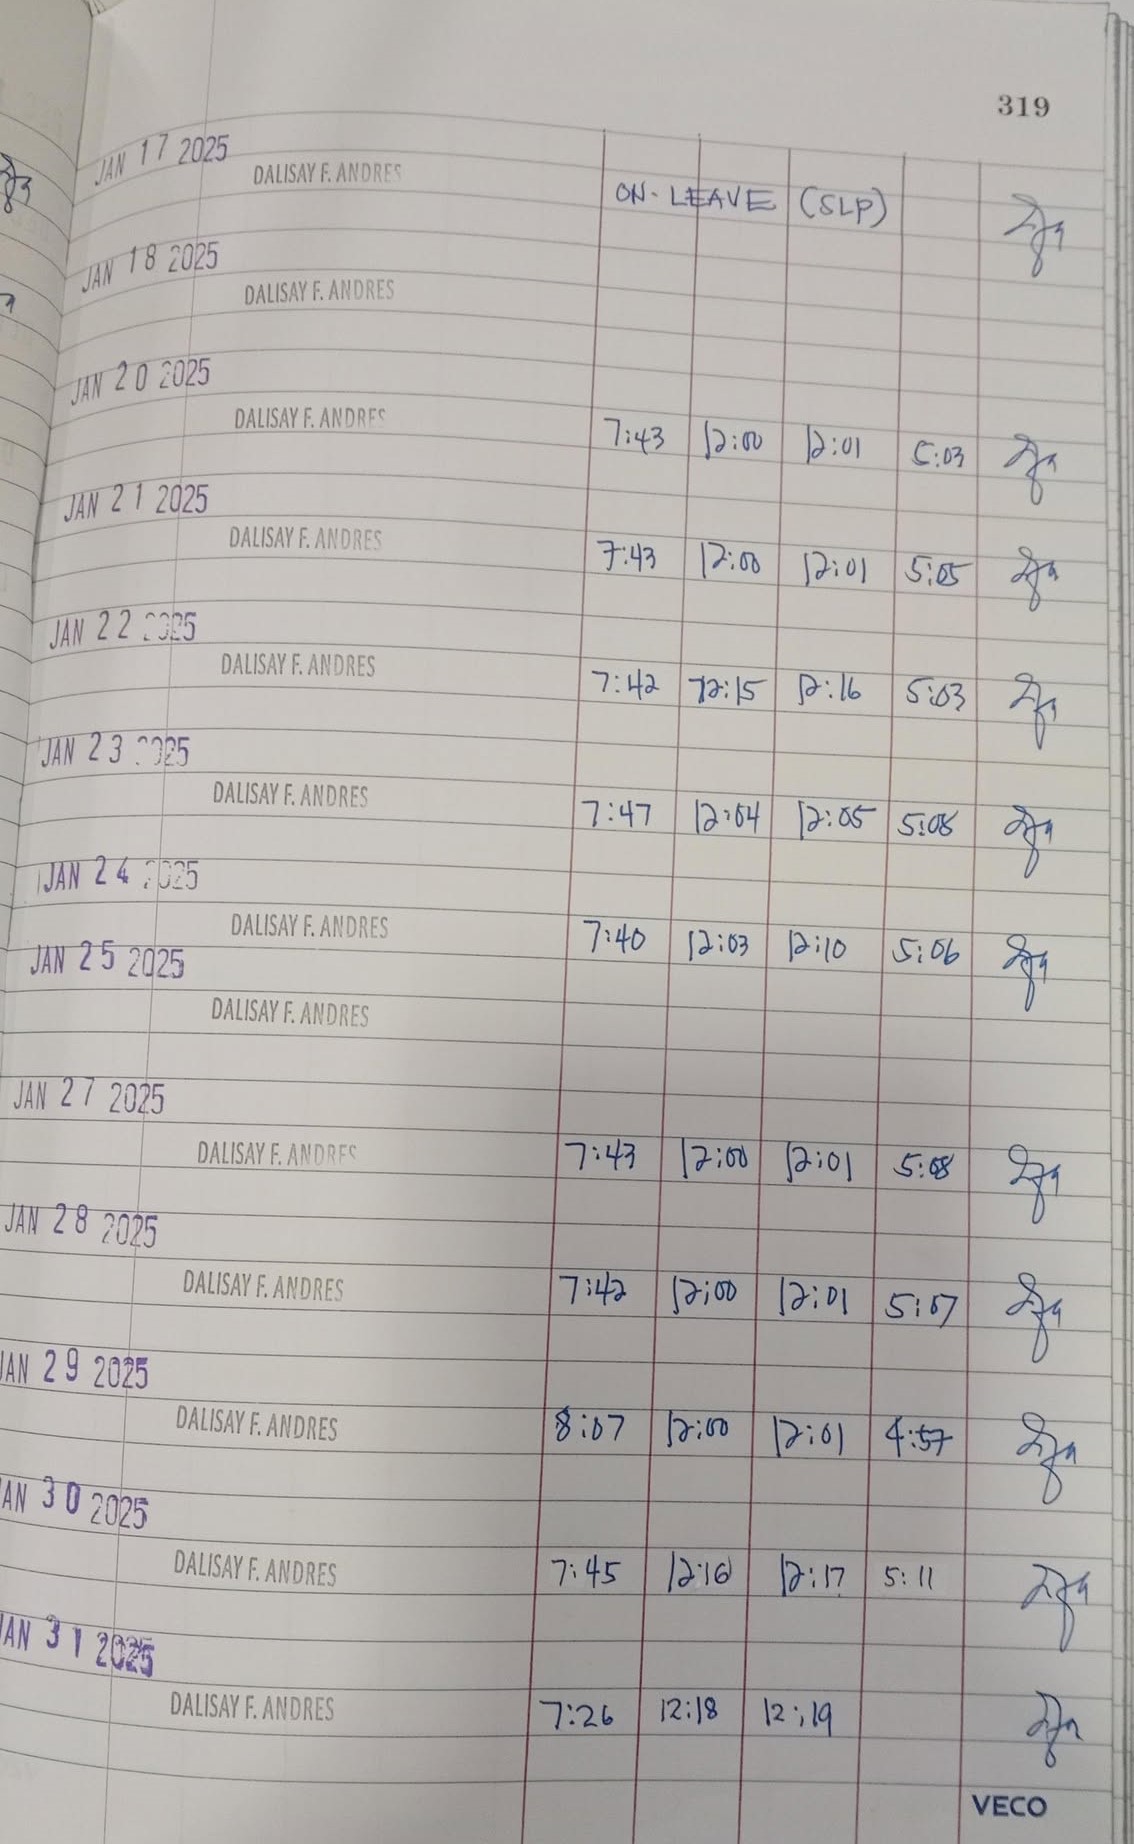 319
JAN 17 2025
DALISAY F. ANDRES
ON-LEAVE (SLP)
JAN 18 2025
DALISAY F. ANDRES
JAN 20 2025
DALISAY F. ANDRES 7:43 12:00 12:01 5:03
JAN 21 2025
DALISAY F. ANDRES 7:43 12:00 12:01 5:05
JAN 22 2025
DALISAY F. ANDRES 7:42 12:15 12:16 5:03
JAN 23 2025
DALISAY F. ANDRES 7:47 12:04 12:05 5:08
JAN 24 2025
DALISAY F. ANDRES 7:40 12:03 12:10 5:06
JAN 25 2025
DALISAY F. ANDRES
JAN 27 2025
DALISAY F. ANDRES 7:43 12:00 12:01 5:08
JAN 28 2025
DALISAY F. ANDRES 7:42 12:00 12:01 5:07
JAN 29 2025
DALISAY F. ANDRES 8:07 12:00 12:01 4:57
JAN 30 2025
DALISAY F. ANDRES 7:45 12:16 12:17 5:11
JAN 31 2025
DALISAY F. ANDRES 7:26 12:18 12:19
VECO